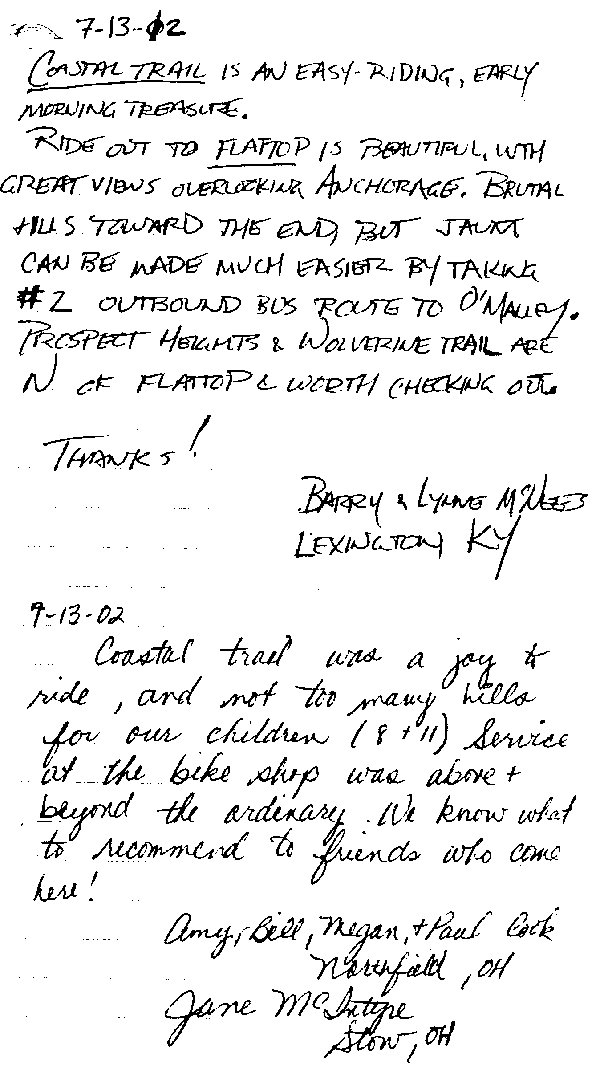 7-13-02
COASTAL TRAIL IS AN EASY-RIDING, EARLY
MORNING TREASURE.
RIDE OUT TO FLATTOP IS BEAUTIFUL, WITH
GREAT VIEWS OVERLOOKING ANCHORAGE. BRUTAL
HILLS TOWARD THE END, BUT JAUNT
CAN BE MADE MUCH EASIER BY TAKING
#2 OUTBOUND BUS ROUTE TO O'MALLEY.
PROSPECT HEIGHTS & WOLVERINE TRAIL ARE
N OF FLATTOP & WORTH CHECKING OUT.
THANKS!
BARRY & LYNNE MCNEES
LEXINGTON, KY
7-13-02
Coastal trail was a joy to
ride, and not too many hills
for our children (8 + 11) Service
at the bike shop was above +
beyond the ordinary. We know what
to recommend to friends who come
here!
Amy, Bill, Megan, + Paul Cock
Northfield, OH
Jane McIntyre
Stow, OH